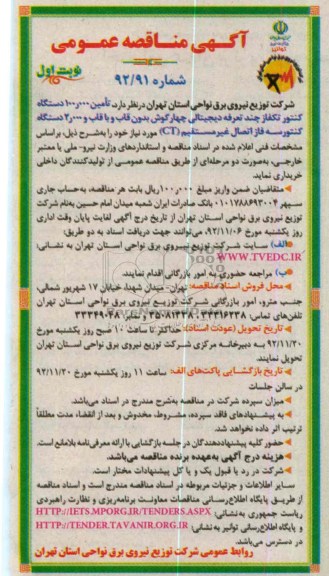 آگهی مناقصه عمومی
شماره ۹۲/۹۱
نوبت اول
شرکت توزیع نیروی برق نواحی استان تهران درنظر دارد، تأمین ۱۰۰٫۰۰۰ دستگاه
کنتور تکفاز چند تعرفه دیجیتالی چهارگوش بدون قاب و با قاب و ۲٫۰۰۰ دستگاه
کنتور سه فاز اتصال غیرمستقیم (CT) مورد نیاز خود را به‌شرح ذیل، براساس
مشخصات فنی اعلام شده در اسناد مناقصه و استانداردهای وزارت نیرو- ملی یا معتبر
خارجی، به‌صورت دو مرحله‌ای از طریق مناقصه عمومی از تولیدکنندگان داخلی
خریداری نماید.
متقاضیان ضمن واریز مبلغ ۱۰۰٫۰۰۰ ریال بابت هر مناقصه، به‌حساب جاری
سپهر ۰۱۰۱۷۸۸۶۹۳۰۰۴ بانک صادرات ایران شعبه میدان امام حسین به‌نام شرکت
توزیع نیروی برق نواحی استان تهران از تاریخ درج آگهی لغایت پایان وقت اداری
روز یکشنبه مورخ ۹۲/۱۱/۰۶، می‌توانند جهت دریافت اسناد به دو طریق:
الف) سایت شرکت توزیع نیروی برق نواحی استان تهران به نشانی:
WWW.TVEDC.IR
ب) مراجعه حضوری به امور بازرگانی اقدام نمایند.
محل فروش اسناد مناقصه: تهران- میدان شهدا، خیابان ۱۷ شهریور شمالی،
جنب مترو، امور بازرگانی شرکت توزیع نیروی برق نواحی استان تهران
تاریخ تحویل (عودت اسناد): حداکثر تا ساعت ۱۰ صبح روز یکشنبه مورخ
۹۲/۱۱/۲۰ به دبیرخانه مرکزی شرکت توزیع نیروی برق نواحی استان تهران
تحویل نمایند.
تاریخ بازگشایی پاکت‌های الف: ساعت ۱۱ روز یکشنبه مورخ ۹۲/۱۱/۲۰
در سالن جلسات
میزان سپرده شرکت در مناقصه به‌شرح مندرج در اسناد می‌باشد.
به پیشنهادهای فاقد سپرده، مشروط، مخدوش و بعد از انقضاء مدت مطلقاً
ترتیب اثر داده نخواهد شد.
حضور کلیه پیشنهاددهندگان در جلسه بازگشایی با ارائه معرفی‌نامه بلامانع است.
هزینه درج آگهی به‌عهده برنده مناقصه می‌باشد.
شرکت در رد یا قبول یک و یا کل پیشنهادات مختار است.
سایر اطلاعات و جزئیات مربوطه در اسناد مناقصه مندرج است و اسناد مناقصه
از طریق پایگاه اطلاع‌رسانی مناقصات معاونت برنامه‌ریزی و نظارت راهبردی
ریاست جمهوری به‌نشانی: HTTP://IETS.MPORG.IR/TENDERS.ASPX
و پایگاه اطلاع‌رسانی توانیر به‌نشانی: HTTP://TENDER.TAVANIR.ORG.IR
در دسترس می‌باشد.
روابط عمومی شرکت توزیع نیروی برق نواحی استان تهران